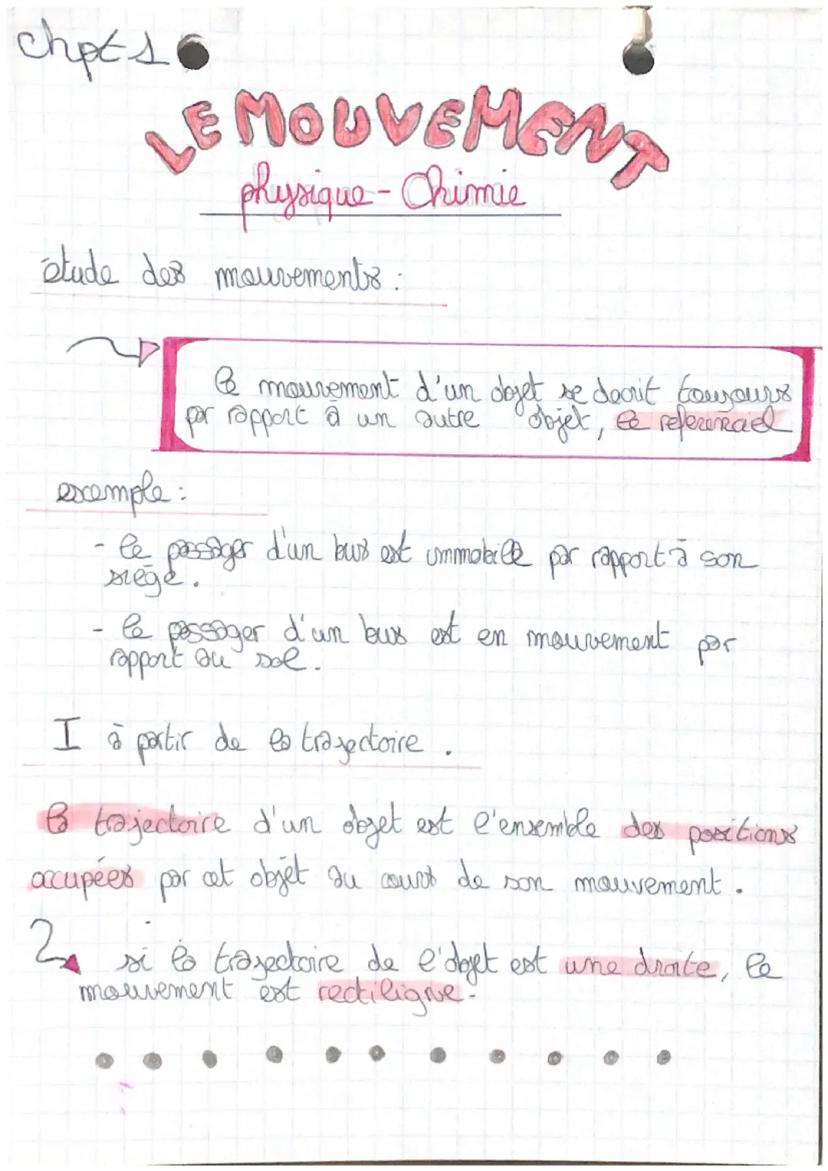 Chpt 1
LE MOUVEMENT
physique - Chimie
étude des mouvements :
le mouvement d'un objet se decrit toujours
par rapport à un autre objet, le referenciel
exemple :
- le passager d'un bus est immobile par rapport à son
siège.
- le passager d'un bus est en mouvement par
rapport au sol.
I à partir de la trajectoire .
la trajectoire d'un objet est l'ensemble des positions
occupées par cet objet au cours de son mouvement .
si la trajectoire de l'objet est une droite, le
mouvement est rectiligne.